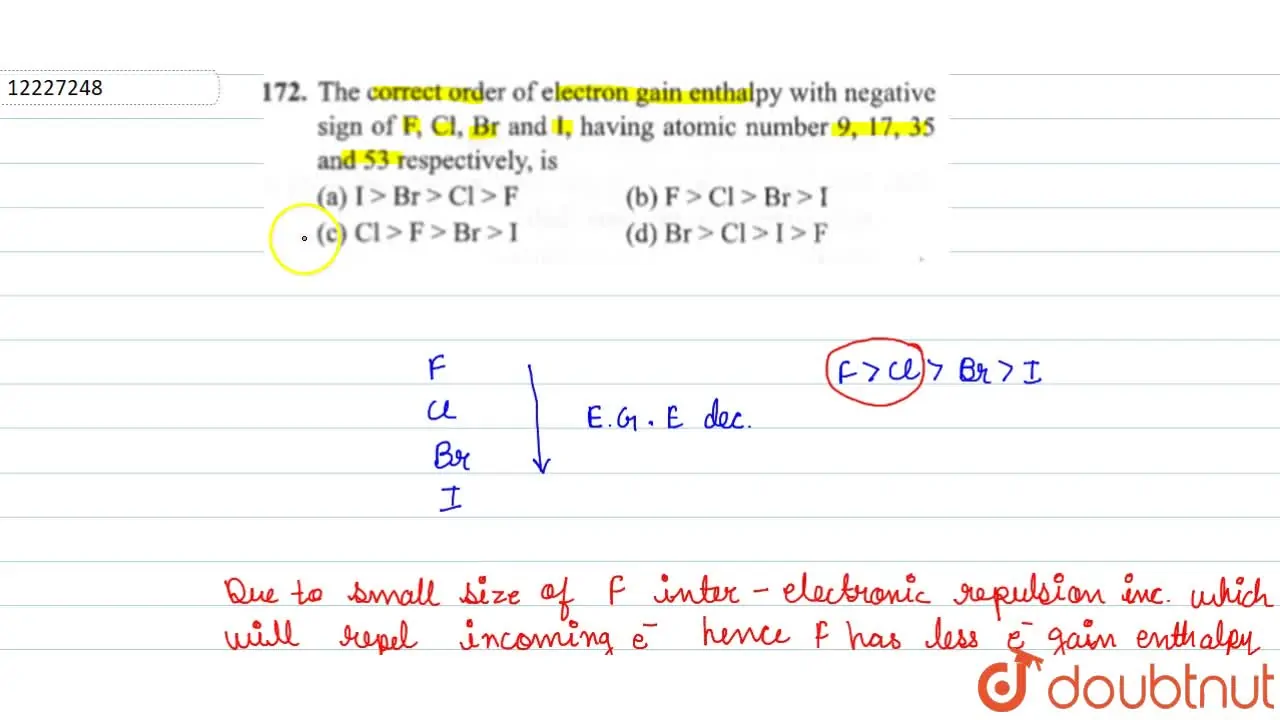 12227248
172. The correct order of electron gain enthalpy with negative
sign of F, Cl, Br and I, having atomic number 9, 17, 35
and 53 respectively, is
(a) I > Br > Cl > F (b) F > Cl > Br > I
(c) Cl > F > Br > I (d) Br > Cl > I > F
F
Cl
Br
I
E.G.E dec.
F > Cl > Br > I
Due to small size of F inter-electronic repulsion inc. which
will repel incoming e⁻ hence F has less e⁻ gain enthalpy
doubtnut